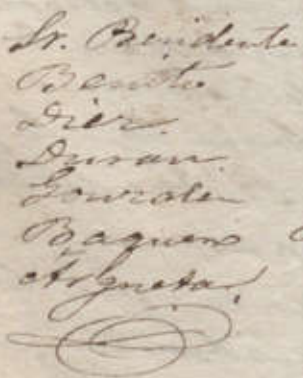 Sr. Presidente
Benito
Diez.
Duran.
Gonzalez
Baquero
Argueta.